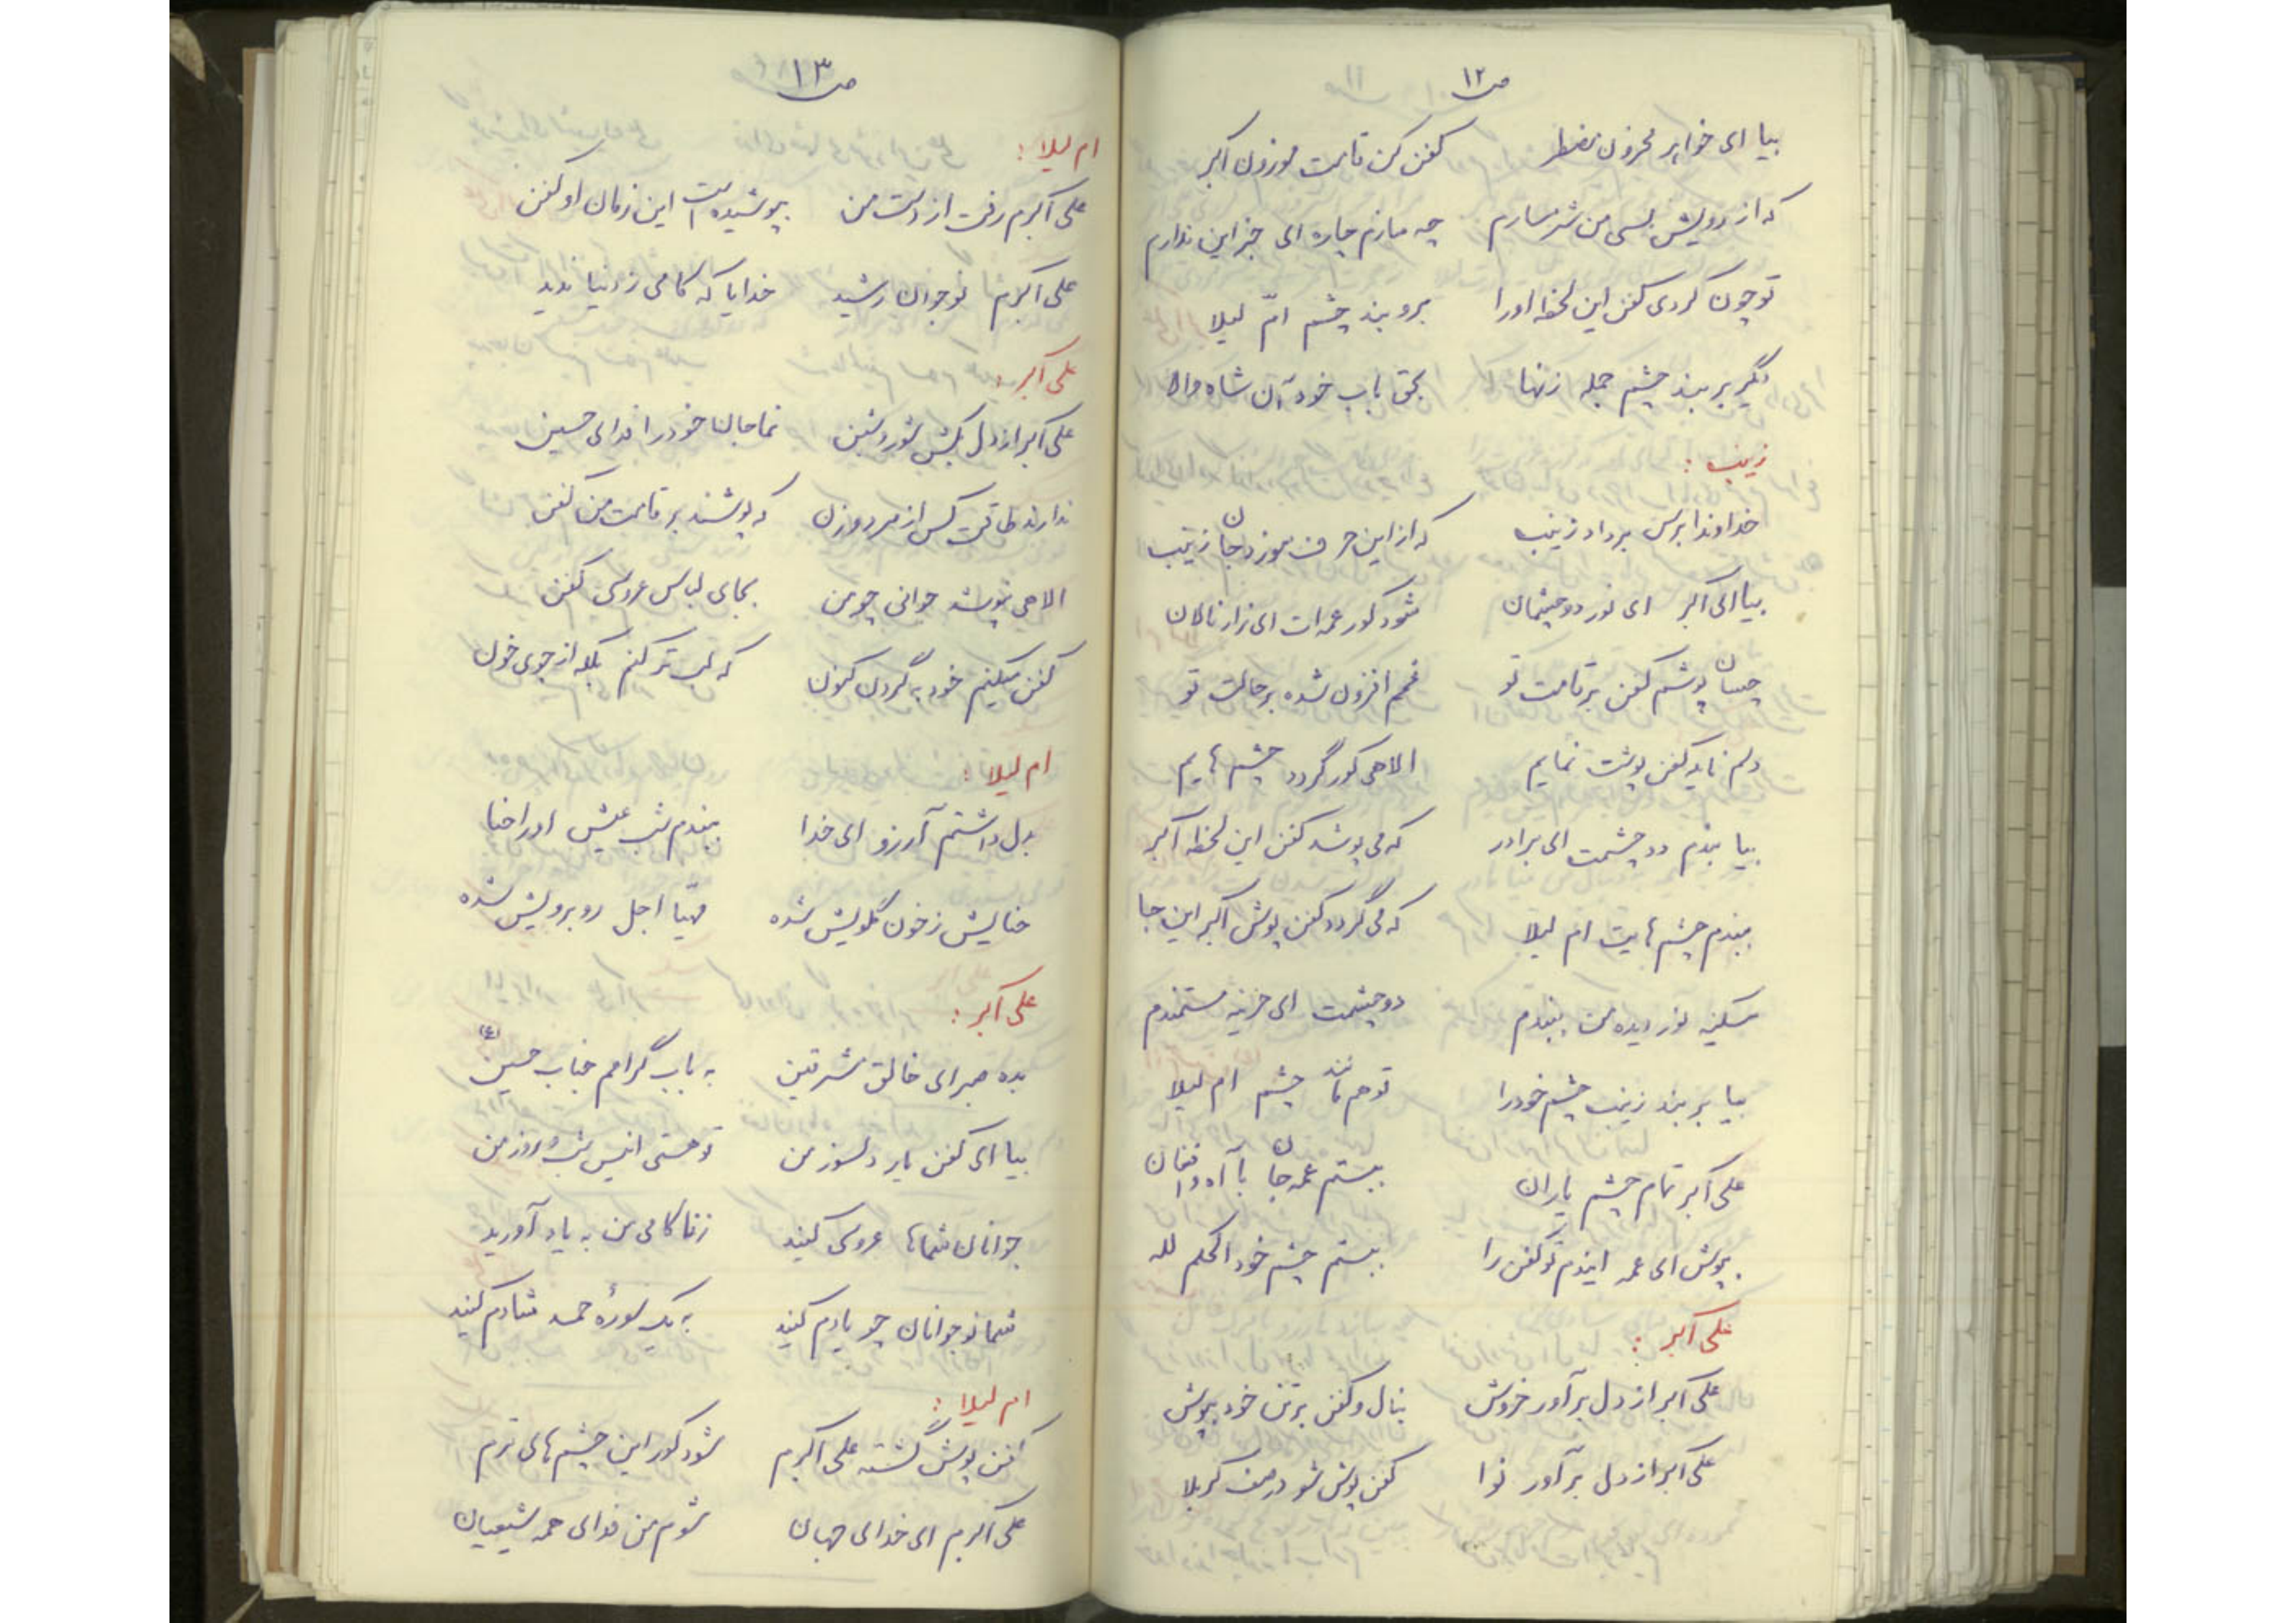 ص۱۲
بیا ای خواهر محزون مضطر کفن کن قامت موزون اکبر
که از رویش بسی من شرمسارم چه سازم چاره ای جز این ندارم
تو چون کردی کفن این لحظه او را برو بند چشم امّ لیلا
دگر بر بند چشم جمله زنها بحق باب خود آن شاه والا
زینب :
خداوندا برس بر داد زینب که از این حرف سوزد جان زینب
بیا ای اکبر ای نور دو چشمان شود کور عمه ات ای زار نالان
چسان پوشم کفن بر قامت تو غمم افزون شده بر حالت تو
دلم ناید کفن پوشت نمایم الاهی کور گردد چشم هایم
بیا بندم دو چشمت ای برادر که می پوشد کفن این لحظه اکبر
ببندم چشم هایت ام لیلا که می گردد کفن پوش اکبر این جا
سکینه نور دیده من ببندم دو چشمت ای حزینه مستمندم
بیا بر بند زینب چشم خود را تو هم مانند چشم ام لیلا
علی اکبر تمام چشم یاران ببستم عمه جان با آه و افغان
بپوش ای عمه ایندم تو کفن را ببستم چشم خود الحکم لله
علی اکبر :
علی اکبر از دل برآور خروش بنال و کفن بر تن خود بپوش
علی اکبر از دل برآور نوا کفن پوش شو در صف کربلا
ص۱۳
ام لیلا :
علی اکبرم رفت از دست من بپوشیده است این زمان او کفن
علی اکبرم نوجوان رشید خدایا که کامی ز دنیا ندید
علی اکبر :
علی اکبر از دل بکش شور و شین نما جان خود را فدای حسین
ندارند طاقت کس از مرد و زن که پوشند بر قامت من کفن
الاهی نپوشد جوانی چو من بجای لباس عروسی کفن
کفن میکنیم خود به گردن کنون که لب تر کنم بلکه از جوی خون
ام لیلا :
بدل داشتم آرزو ای خدا ببندم شب عیش او را حنا
حنایش ز خون گلویش شده مهیّا اجل روبرویش شده
علی اکبر :
بده صبر ای خالق مشرقین به باب گرامم جناب حسین (ع)
بیا ای کفن یار دلسوز من تو هستی انیس شب و روز من
جوانان شماها عروسی کنید ز ناکامی من به یاد آورید
شما نوجوانان چو یادم کنید به یک سورهٔ حمد شادم کنید
ام لیلا :
کفن پوش گشته علی اکبرم شود کور این چشم های ترم
علی اکبرم ای خدای جهان شوم من فدای همه شیعیان